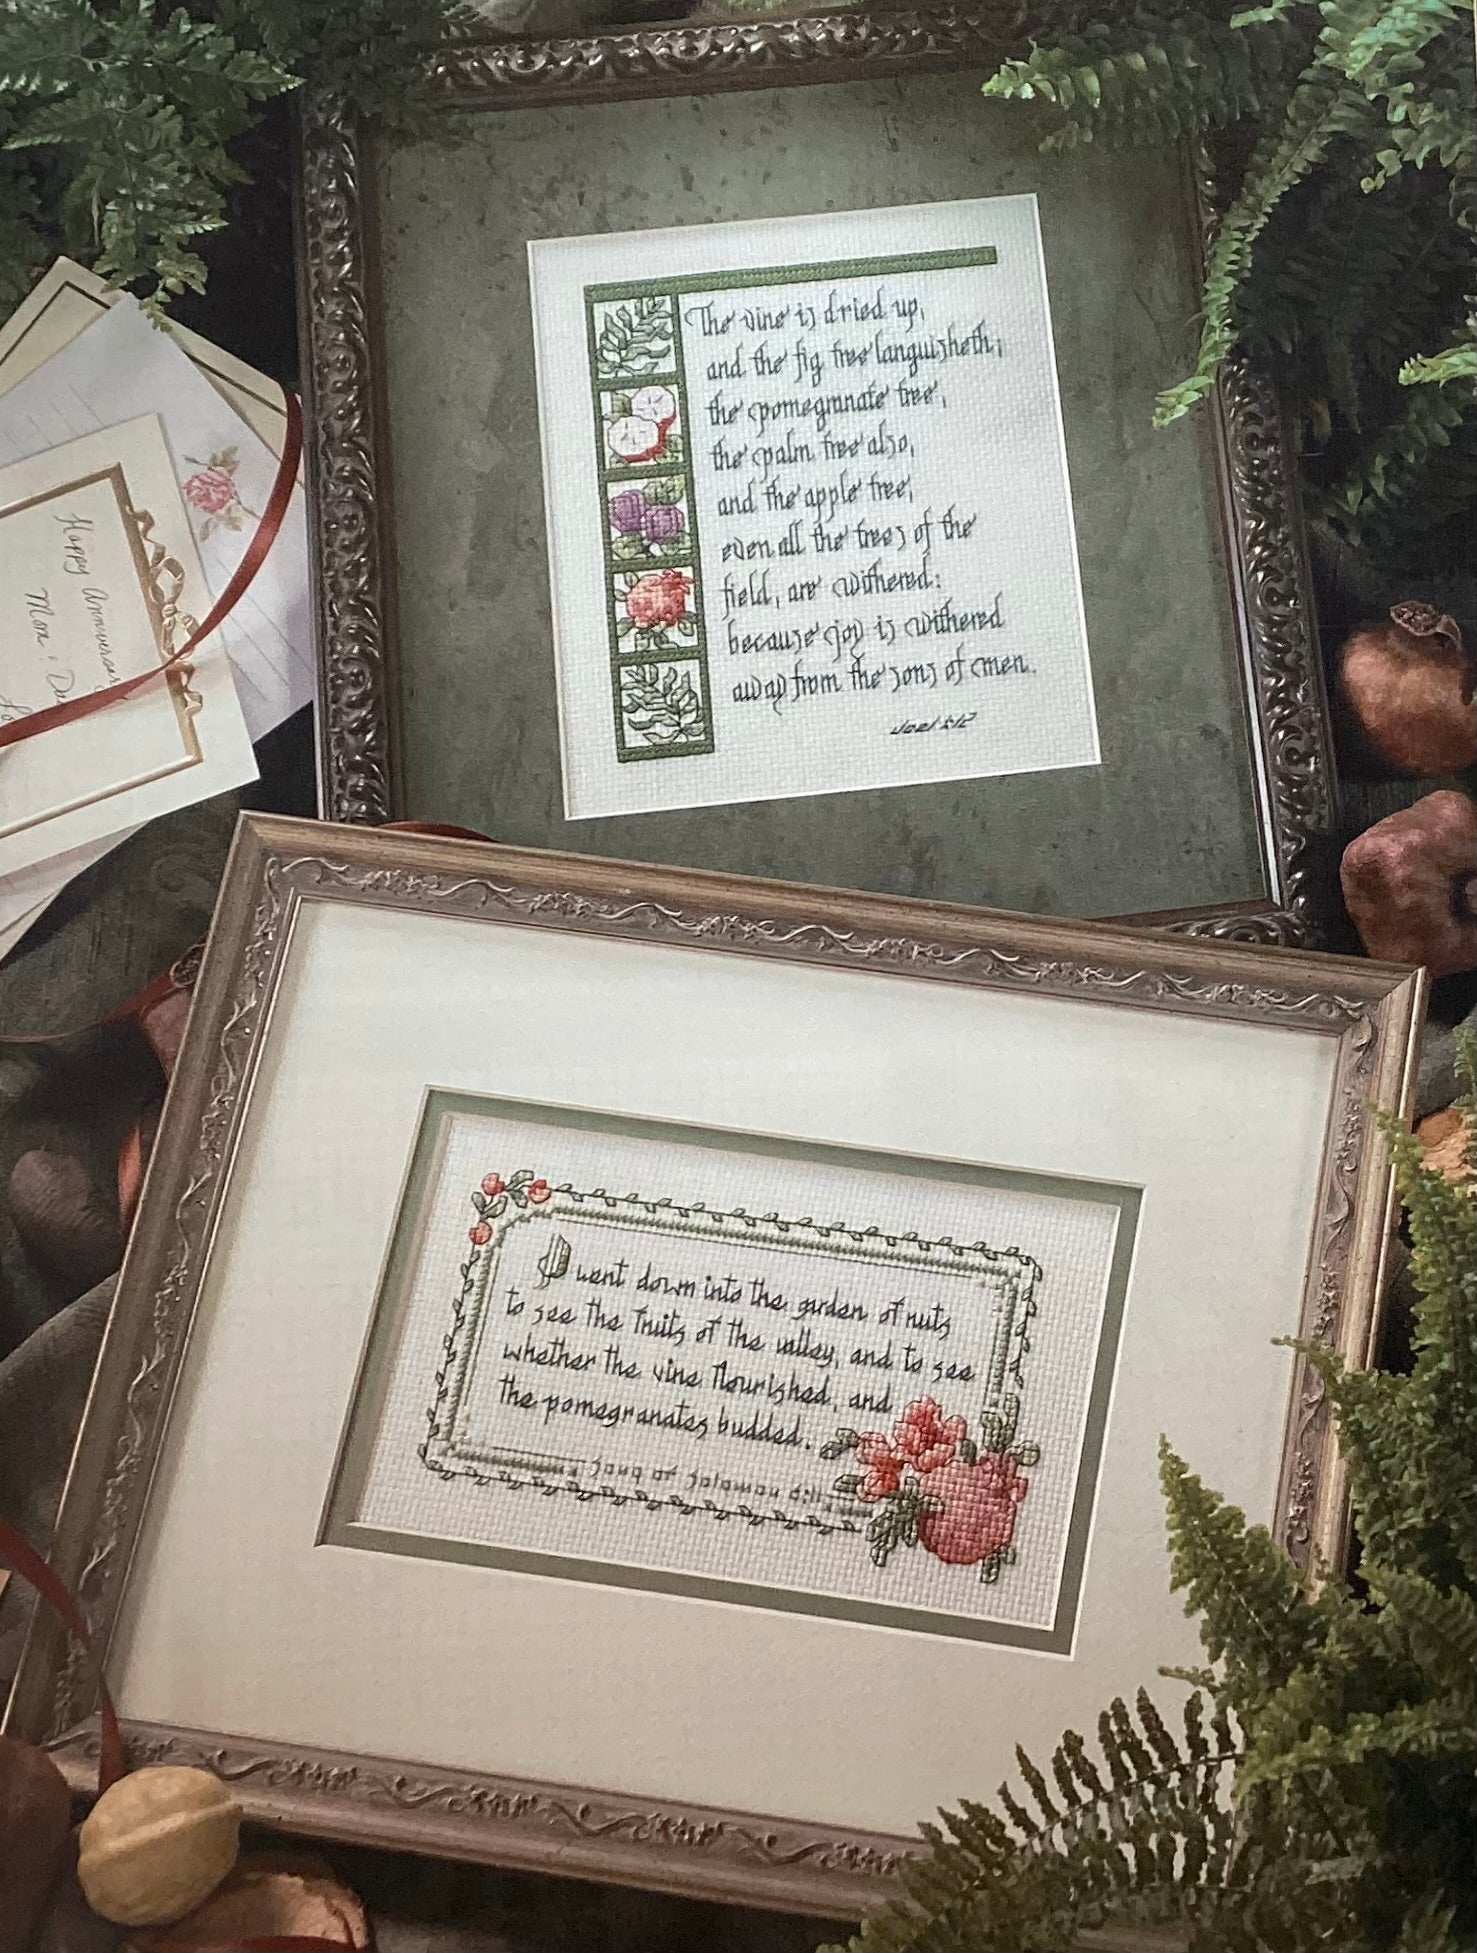 The vine is dried up,
and the fig tree languisheth;
the pomegranate tree,
the palm tree also,
and the apple tree,
even all the trees of the
field, are withered:
because joy is withered
away from the sons of men.
Joel 1:12
Happy Anniversary
Mom & Dad
I went down into the garden of nuts
to see the fruits of the valley, and to see
whether the vine flourished, and
the pomegranates budded.
Song of Solomon 6:11